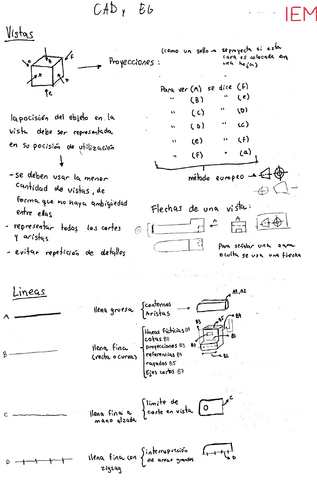 CAD y EG
IEM
Vistas
Proyecciones:
(como un sello → se proyecta si esta
cara es colocada en
una hoja)
Para ver (A) se dice (F)
" (B) " (E)
" (C) " (D)
" (D) " (C)
" (E) " (B)
" (F) " (a)
método europeo →
la posición del objeto en la
vista debe ser representada
en su pocisión de utilización
- se deben usar la menor
cantidad de vistas, de
forma que no haya ambigüedad
entre ellas
- representar todos los cortes
y aristas
- evitar repetición de detalles
Flechas de una vista:
Para señalar una cara
oculta se usa una flecha
Lineas
A
llena gruesa
contornos
Aristas
A1, A2
B
llena fina
(recta o curva)
líneas ficticias B1
cotas B2
proyecciones B3
referencias
rayados B5
Ejes cortos B7
C
llena fina a
mano alzada
limite de
corte en vista
C
D
llena fina con
zigzag
interrupción
de areas grandes
D